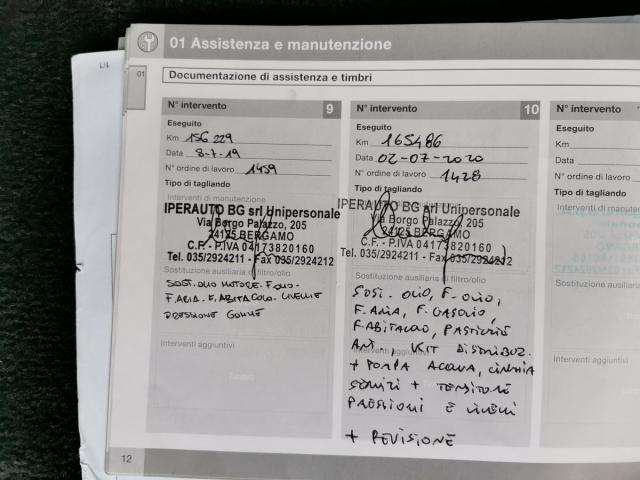 01 Assistenza e manutenzione
01
Documentazione di assistenza e timbri
N° intervento 9
Eseguito
Km 156 229
Data 8-7-19
N° ordine di lavoro 1459
Tipo di tagliando
Interventi di manutenzione
IPERAUTO BG srl Unipersonale
Via Borgo Palazzo, 205
24125 BERGAMO
C.F. - P.IVA 04173820160
Tel. 035/2924211 - Fax 035/2924212
Sostituzione ausiliaria di filtro/olio
SOST. OLIO MOTORE. F.OLIO.
F.ARIA. F.ABITACOLO. LIVELLI E
PRESSIONE GOMME
Interventi aggiuntivi
N° intervento 10
Eseguito
Km 165486
Data 02-07-2020
N° ordine di lavoro 1428
Tipo di tagliando
IPERAUTO BG srl Unipersonale
Via Borgo Palazzo, 205
24125 BERGAMO
C.F. - P.IVA 04173820160
Tel. 035/2924211 - Fax 035/2924212
Sostituzione ausiliaria di filtro/olio
SOST. OLIO, F. OLIO,
F. ARIA, F. GASOLIO,
F. ABITACOLO, PASTIGLIE
ANT., KIT DISTRIBUZ.
Interventi aggiuntivi
+ POMPA ACQUA, CINGHIA
SERVIZI + TENDITORE
PRESSIONI E LIVELLI
+ REVISIONE
N° intervento
Eseguito
Km
Data
N° ordine di lavoro
Tipo di tagliando
Interventi di
Sostituzione
Interventi
12